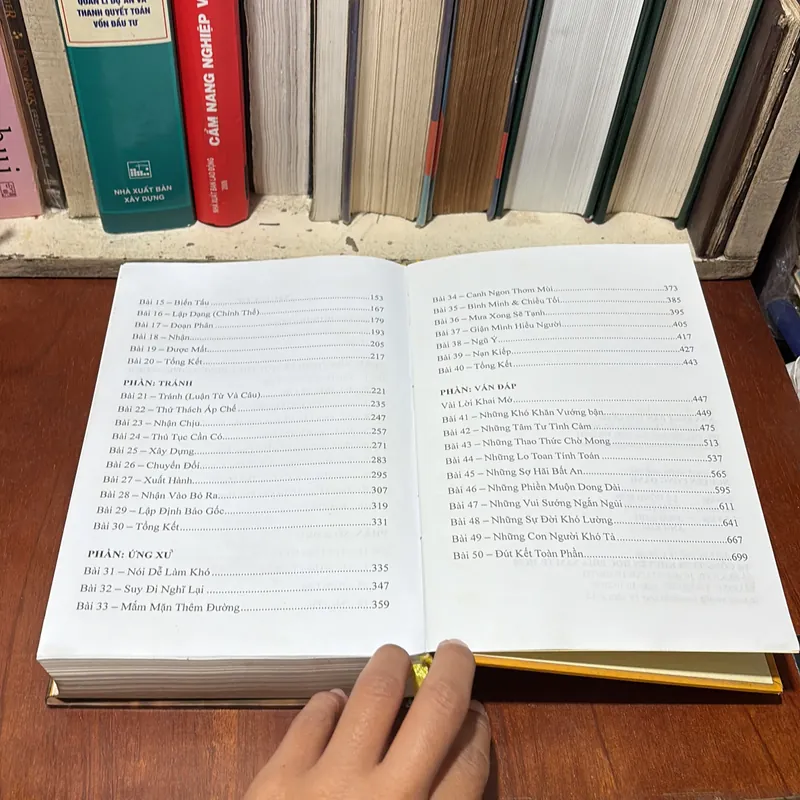 QUẢN LÍ DỰ ÁN VÀ
THANH QUYẾT TOÁN
VỐN ĐẦU TƯ
NHÀ XUẤT BẢN
XÂY DỰNG
CẨM NANG NGHIỆP V
NHÀ XUẤT BẢN LAO ĐỘNG
hui
Bài 15 – Biến Tấu...153
Bài 16 – Lập Dạng (Chỉnh Thể)...167
Bài 17 – Đoạn Phân...179
Bài 18 – Nhận...193
Bài 19 – Được Mất...205
Bài 20 – Tổng Kết...217
PHẦN: TRÁNH
Bài 21 – Tránh (Luận Từ Và Câu)...221
Bài 22 – Thử Thách Áp Chế...235
Bài 23 – Nhận Chịu...247
Bài 24 – Thủ Tục Cần Có...257
Bài 25 – Xây Dựng...271
Bài 26 – Chuyển Đổi...283
Bài 27 – Xuất Hành...295
Bài 28 – Nhận Vào Bỏ Ra...307
Bài 29 – Lập Định Báo Gốc...319
Bài 30 – Tổng Kết...331
PHẦN: ỨNG XỬ
Bài 31 – Nói Dễ Làm Khó...335
Bài 32 – Suy Đi Nghĩ Lại...347
Bài 33 – Mắm Mặn Thêm Đường...359
Bài 34 – Canh Ngon Thơm Mùi...373
Bài 35 – Bình Minh & Chiều Tối...385
Bài 36 – Mưa Xong Sẽ Tạnh...395
Bài 37 – Giận Mình Hiểu Người...405
Bài 38 – Ngũ Ý...417
Bài 39 – Nạn Kiếp...427
Bài 40 – Tổng Kết...443
PHẦN: VẤN ĐÁP
Vài Lời Khai Mở...447
Bài 41 – Những Khó Khăn Vướng bận...449
Bài 42 – Những Tâm Tư Tình Cảm...475
Bài 43 – Những Thao Thức Chờ Mong...513
Bài 44 – Những Lo Toan Tính Toán...537
Bài 45 – Những Sợ Hãi Bất An...565
Bài 46 – Những Phiền Muộn Dong Dài...595
Bài 47 – Những Vui Sướng Ngắn Ngủi...611
Bài 48 – Những Sự Đời Khó Lường...641
Bài 49 – Những Con Người Khó Tả...667
Bài 50 – Đút Kết Toàn Phần...699